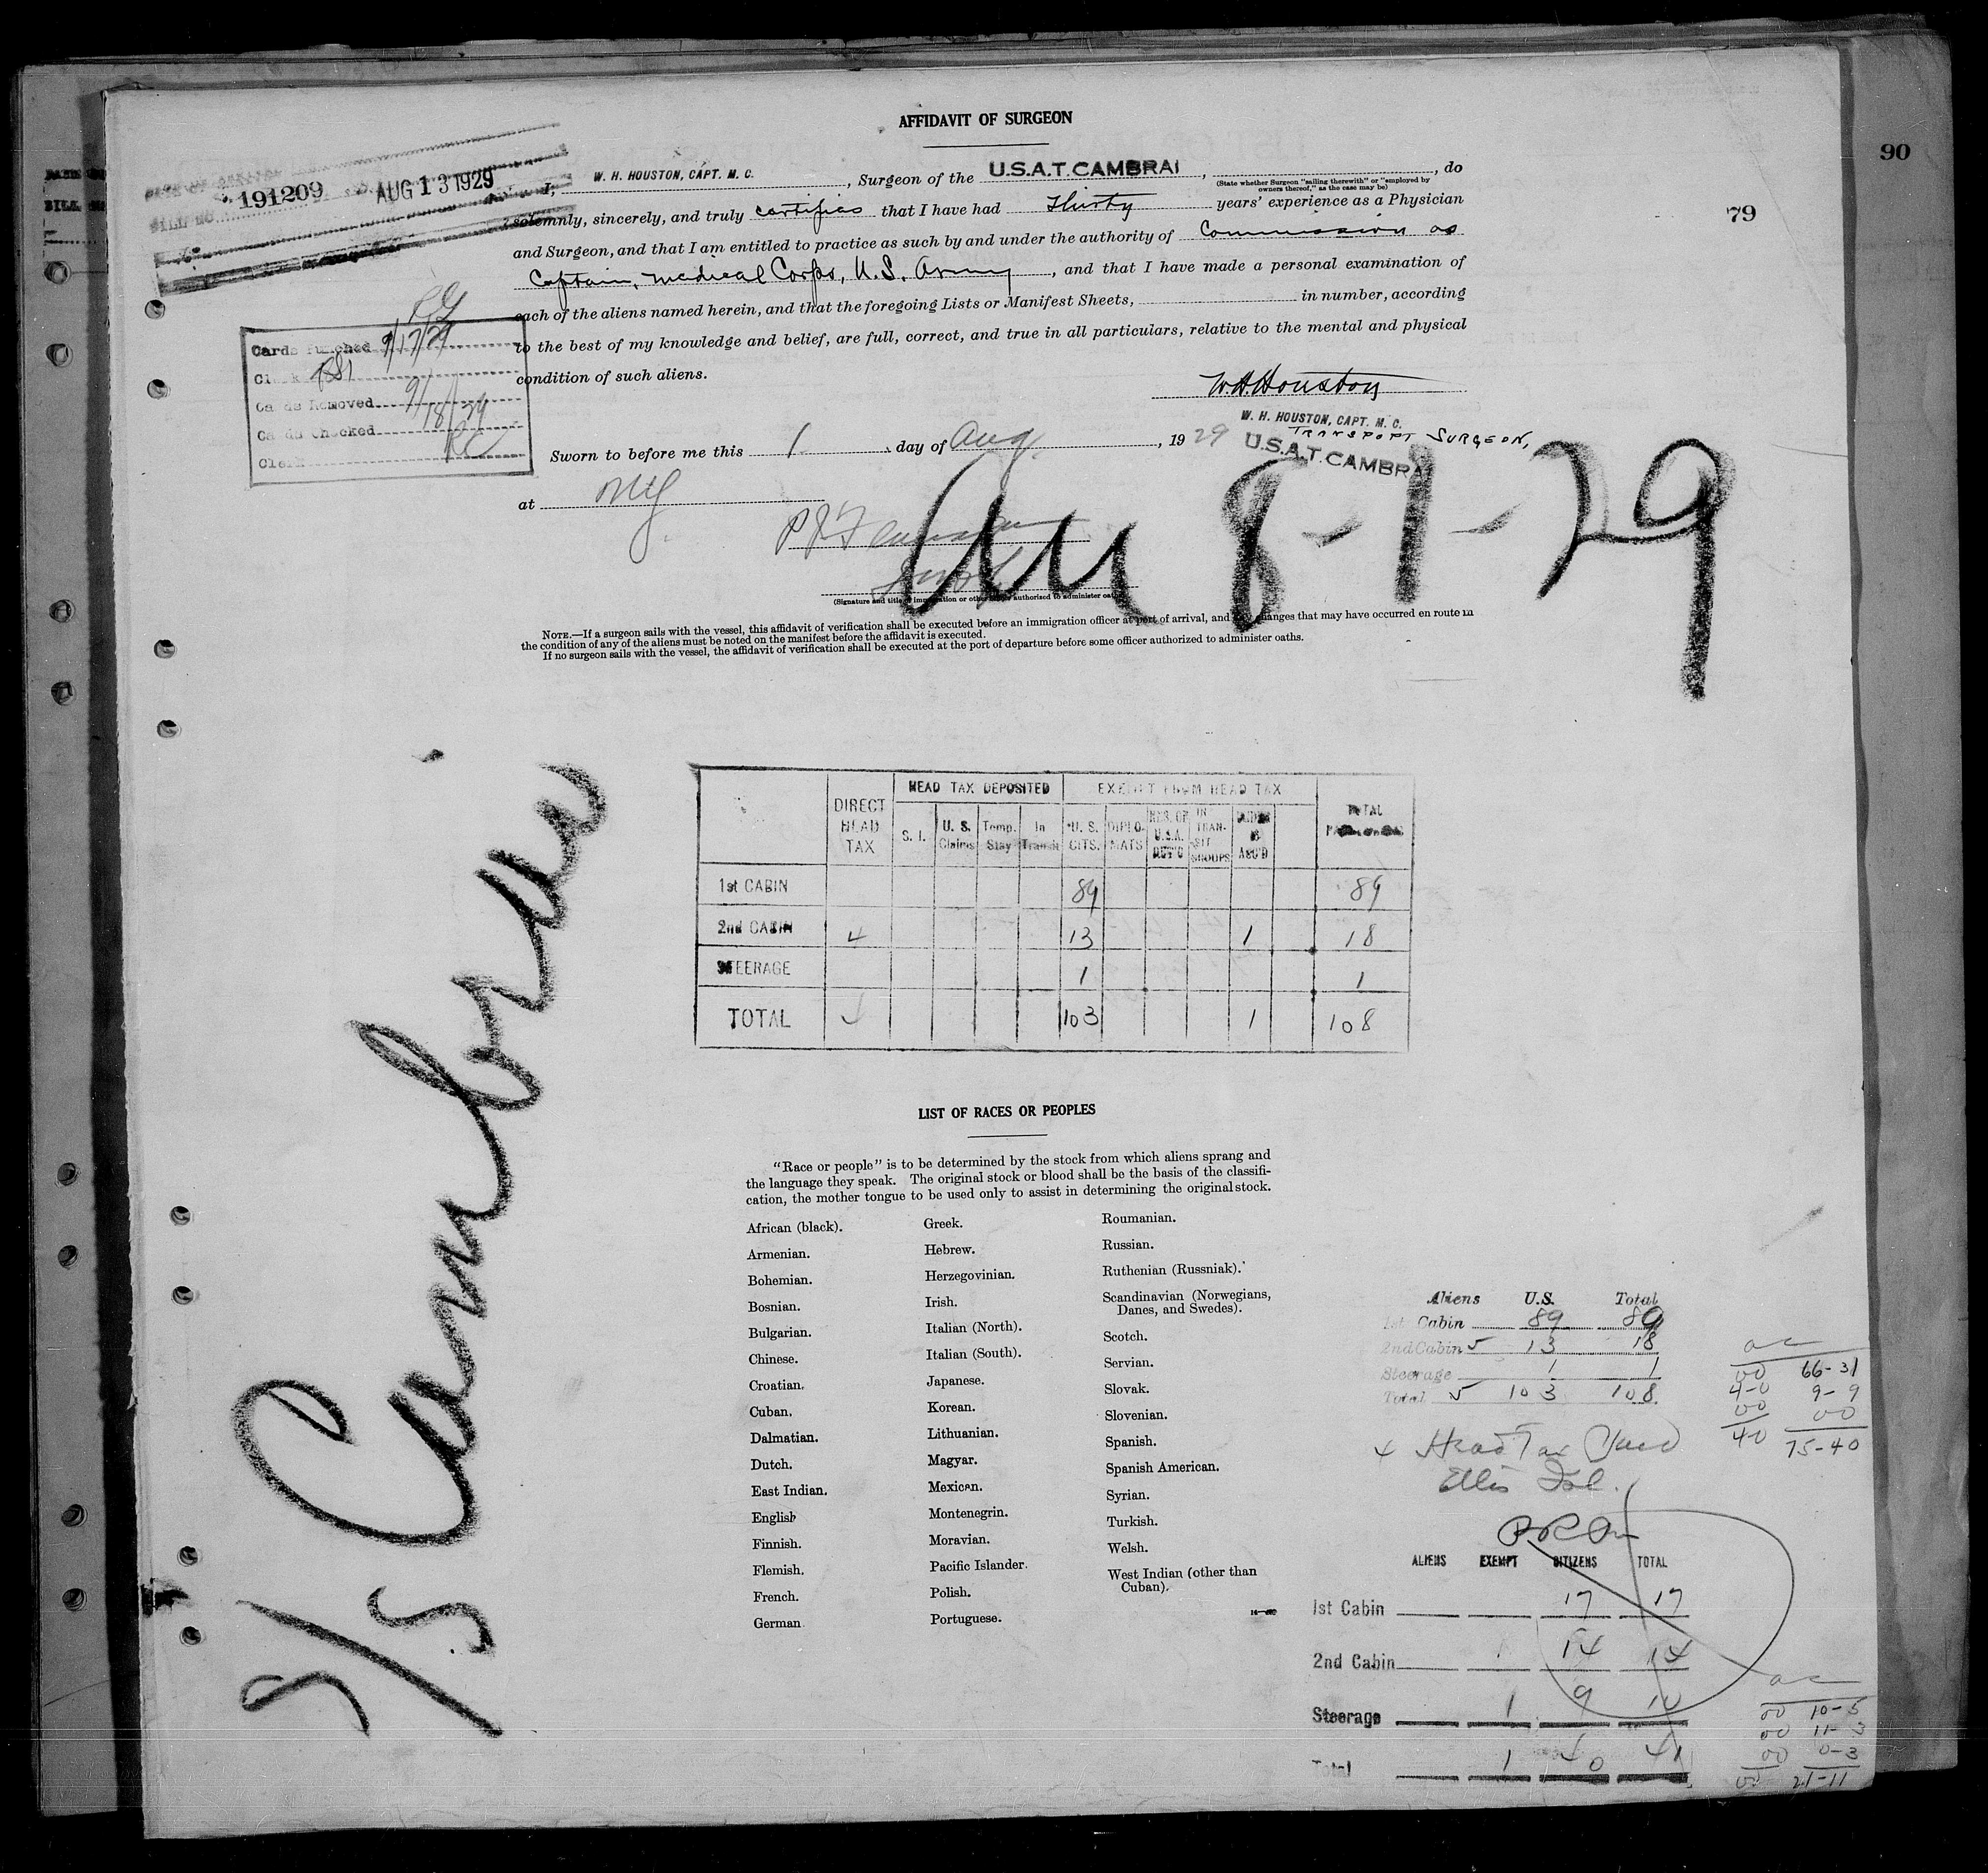 90
79
AFFIDAVIT OF SURGEON
191209 AUG 13 1929
I, W. H. HOUSTON, CAPT. M. C. , Surgeon of the U.S.A.T. CAMBRAI , do
(State whether Surgeon "sailing therewith" or "employed by
owners thereof," as the case may be)
solemnly, sincerely, and truly certifies that I have had Thirty years' experience as a Physician
and Surgeon, and that I am entitled to practice as such by and under the authority of Commission as
Captain, Medical Corps, U.S. Army , and that I have made a personal examination of
each of the aliens named herein, and that the foregoing Lists or Manifest Sheets, in number, according
to the best of my knowledge and belief, are full, correct, and true in all particulars, relative to the mental and physical
condition of such aliens.
Cards Punched 9/17/29
Clerk
Cards Removed 9/18/29
Cards Checked
Clerk
W.H. Houston
W. H. HOUSTON, CAPT. M. C.
TRANSPORT SURGEON,
U.S.A.T. CAMBRAI
Sworn to before me this 1 day of Aug. , 19 29
at NY
8-1-29
(Signature and title of immigration or other officer authorized to administer oaths)
NOTE.—If a surgeon sails with the vessel, this affidavit of verification shall be executed before an immigration officer at port of arrival, and any changes that may have occurred en route in
the condition of any of the aliens must be noted on the manifest before the affidavit is executed.
If no surgeon sails with the vessel, the affidavit of verification shall be executed at the port of departure before some officer authorized to administer oaths.
S/S Cambrai
DIRECT HEAD TAX HEAD TAX DEPOSITED EXEMPT FROM HEAD TAX TOTAL
S. I. U. S. Claims Temp. Stay In Transit U. S. CITS. DIPLO-MATS
1st CABIN 89 89
2nd CABIN 4 13 1 18
STEERAGE 1 1
TOTAL 4 103 1 108
LIST OF RACES OR PEOPLES
"Race or people" is to be determined by the stock from which aliens sprang and
the language they speak. The original stock or blood shall be the basis of the classifi-
cation, the mother tongue to be used only to assist in determining the original stock.
African (black).
Armenian.
Bohemian.
Bosnian.
Bulgarian.
Chinese.
Croatian.
Cuban.
Dalmatian.
Dutch.
East Indian.
English
Finnish.
Flemish.
French.
German
Greek.
Hebrew.
Herzegovinian.
Irish.
Italian (North).
Italian (South).
Japanese.
Korean.
Lithuanian.
Magyar.
Mexican.
Montenegrin.
Moravian.
Pacific Islander.
Polish.
Portuguese.
Roumanian.
Russian.
Ruthenian (Russniak).
Scandinavian (Norwegians,
Danes, and Swedes).
Scotch.
Servian.
Slovak.
Slovenian.
Spanish.
Spanish American.
Syrian.
Turkish.
Welsh.
West Indian (other than
Cuban).
Aliens U.S. Total
1st Cabin 89 89
2nd Cabin 5 13 18
Steerage 1 1
Total 5 103 108
00 66-31
4-0 9-9
00 00
40 75-40
4 Head Tax
Ellis Isl.
ALIENS EXEMPT CITIZENS TOTAL
1st Cabin 17 17
2nd Cabin 14 14
Steerage 1 9 10
Total 1 40 41
00 10-5
00 11-3
00 0-3
00 21-11